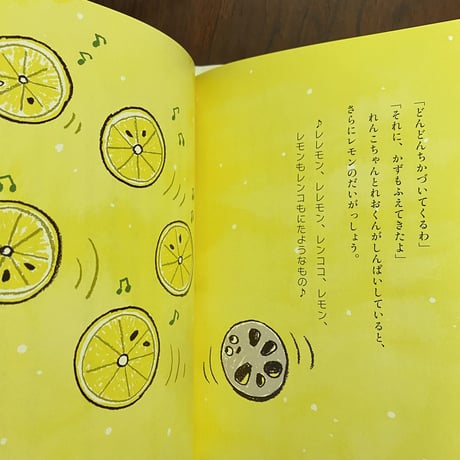 「どんどんちかづいてくるわ」
「それに、かずもふえてきたよ」
れんこちゃんとれおくんがしんぱいしていると、
さらにレモンのだいがっしょう。
♪レレモン、レレモン、レンココ、レモン、
レモンもレンコもにたようなもの♪